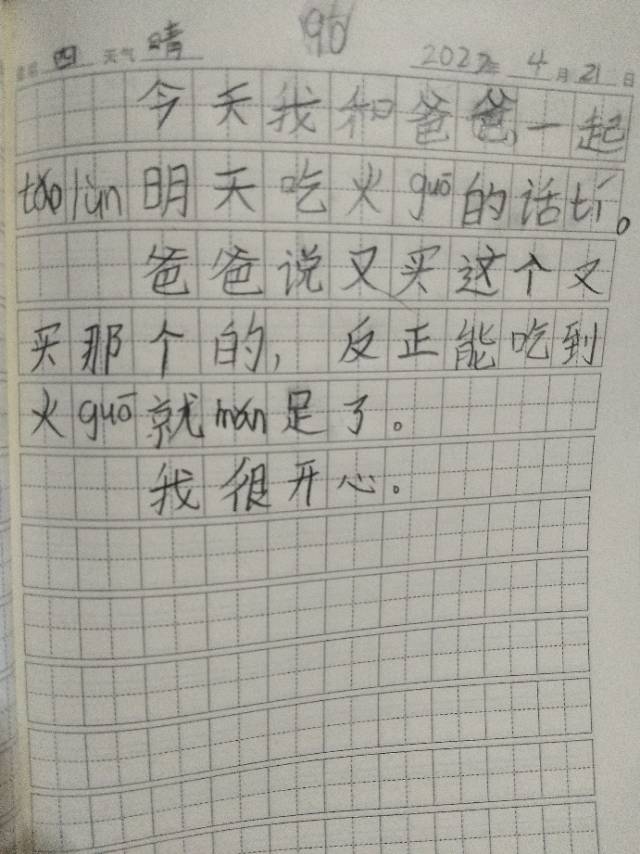 96
星期 四 天气 晴 2022年 4月 21日
今天我和爸爸一起
tǎo lùn 明天吃火 guō 的话 tí。
爸爸说又买这个又
买那个的，反正能吃到
火 guō 就 mǎn 足了。
我很开心。